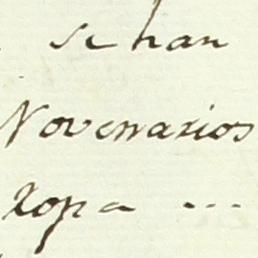 se han
Novenarios
ropa ...